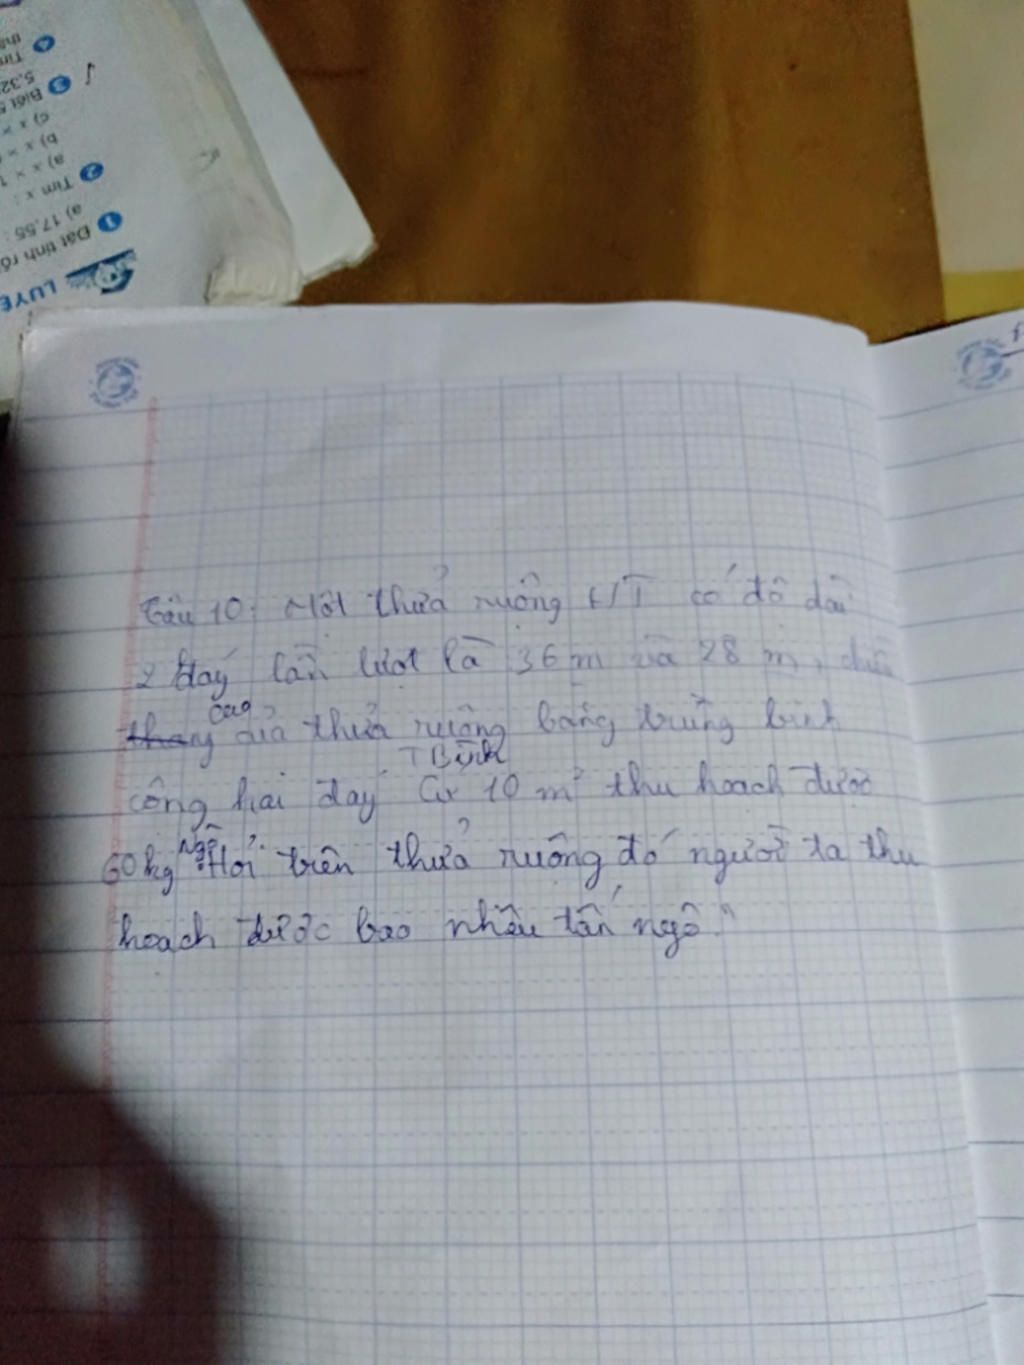 LUYỆ
1 Đặt tính rồ
a) 17,55 :
2 Tìm x :
a) x ×
b) x ×
c) x ×
3 Biết 5
5,32
4 Tìm
Câu 10: Một thửa ruộng HT có độ dài
2 đáy lần lượt là 36 m và 28 m, chiều
cao
thang của thửa ruộng bằng trung bình
cộng hai đáy TBình Cứ 10 m² thu hoạch được
60kg Ngô. Hỏi trên thửa ruộng đó người ta thu
hoạch được bao nhiêu tấn ngô?